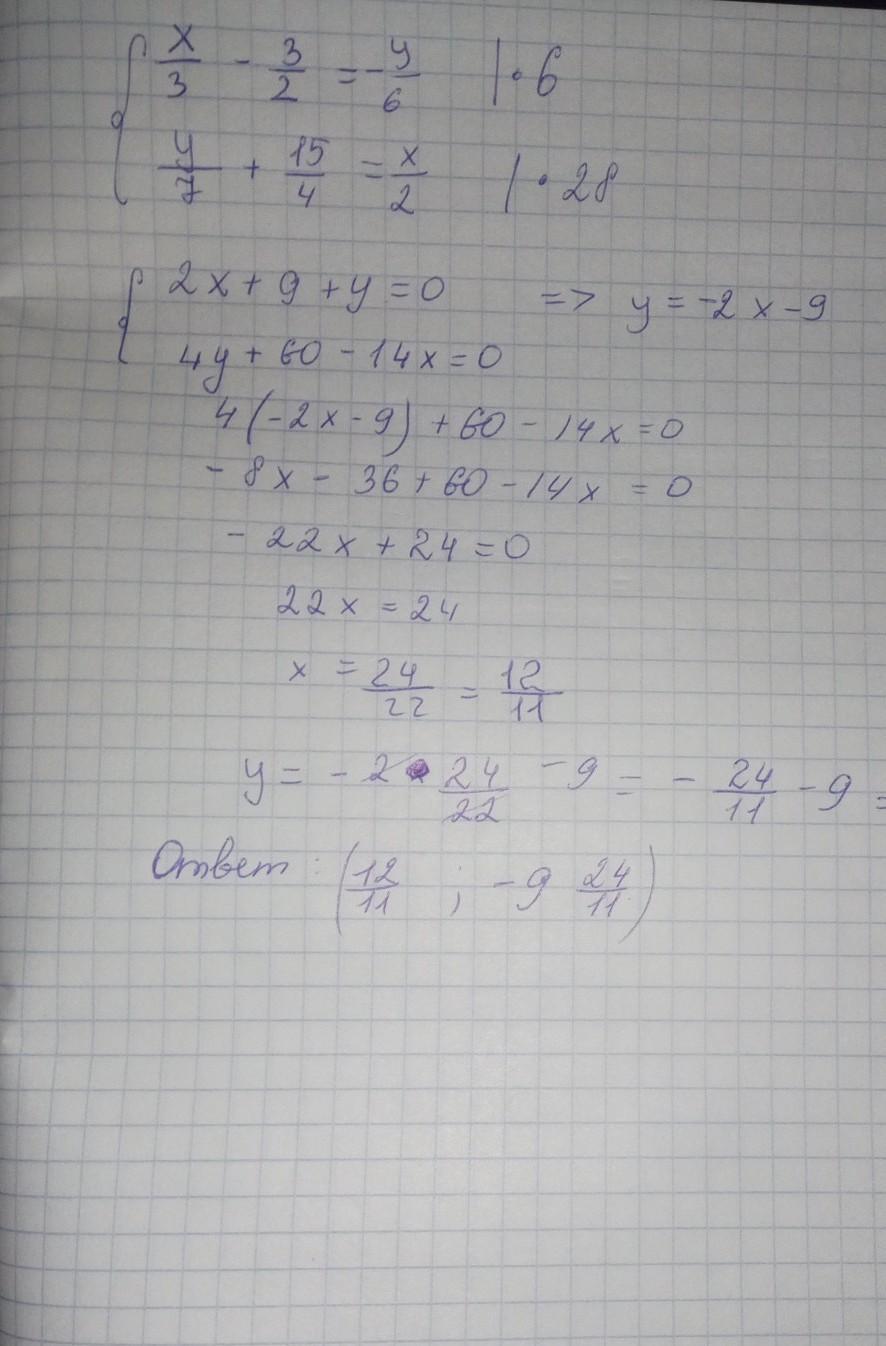 x/3 - 3/2 = -y/6 |·6
y/7 + 15/4 = x/2 |·28
2x + 9 + y = 0 => y = -2x - 9
4y + 60 - 14x = 0
4(-2x - 9) + 60 - 14x = 0
- 8x - 36 + 60 - 14x = 0
- 22x + 24 = 0
22x = 24
x = 24/22 = 12/11
y = - 2 · 24/22 - 9 = - 24/11 - 9 =
Ответ: (12/11 ; -9 24/11)